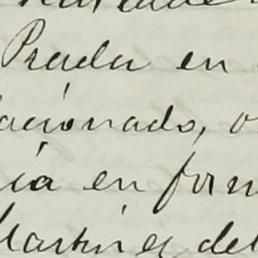 Prada en
acionado, o
ia en form
Martinez del